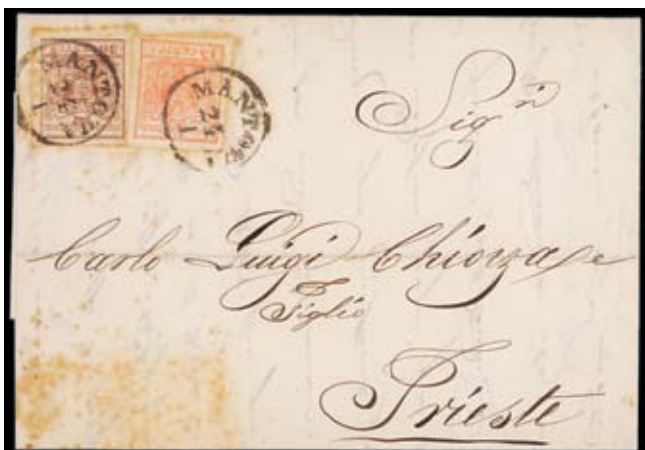 MANTOVA
24
1
MANTOVA
24
1
Sig.ri
Carlo Luigi Chiozza e
Figlio
Trieste